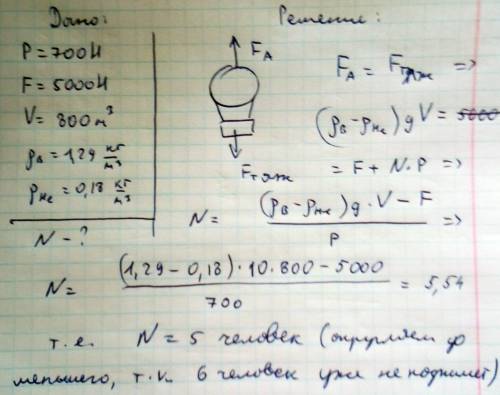 Дано:
Решение:
P = 700 Н
F = 5000 Н
V = 800 м³
ρв = 1,29 кг/м³
ρHe = 0,18 кг/м³
N - ?
FA
Fтяж
FA = Fтяж =>
(ρв - ρHe) g V = 5000
= F + N·P =>
N = ((ρв - ρHe) g · V - F) / P =>
N = ((1,29 - 0,18) · 10 · 800 - 5000) / 700 = 5,54
т.е. N = 5 человек (округляем до
меньшего, т.к. 6 человек уже не поднимет)